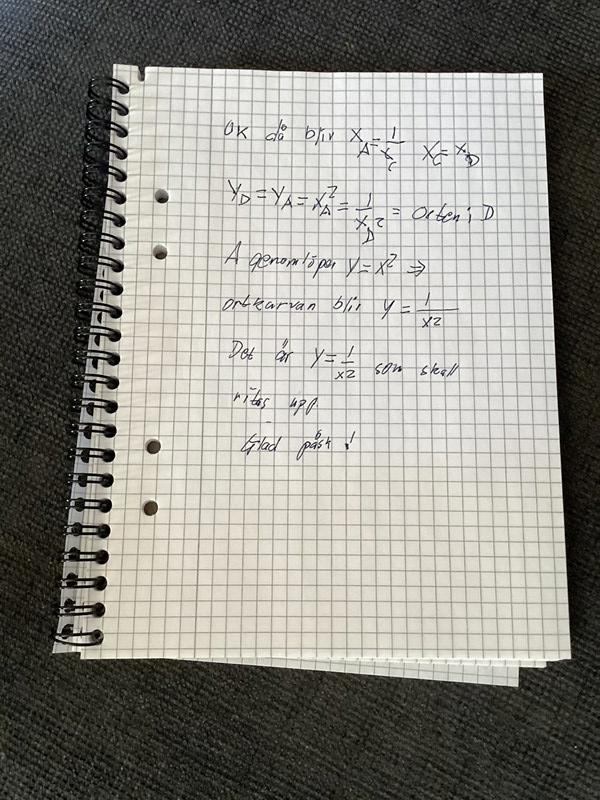 OK då blir X_A = 1/x_C X_C = x_D
Y_D = Y_A = X_A^2 = 1/x_D^2 = orten i D
A genomlöper y = x^2 ⇒
ortkurvan blir y = 1/x2
Det är y = 1/x2 som skall
ritas upp.
Glad påsk !